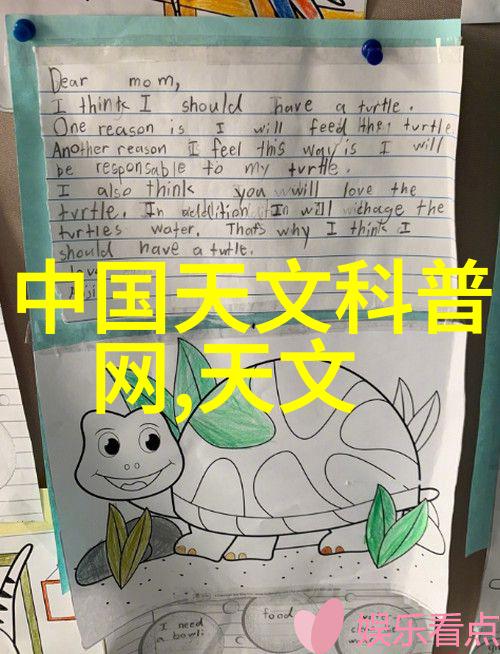 Dear mom,
I think I should have a turtle.
One reason is I will feed the turtle.
Another reason I feel this way is I will
be responsable to my turtle.
I also think you will love the
turtle. In addition In will chage the
turtles water. That's why I think I
should have a turtle.
love
中国天文科普
网,天文
I need
a bowl
food
娱乐看点